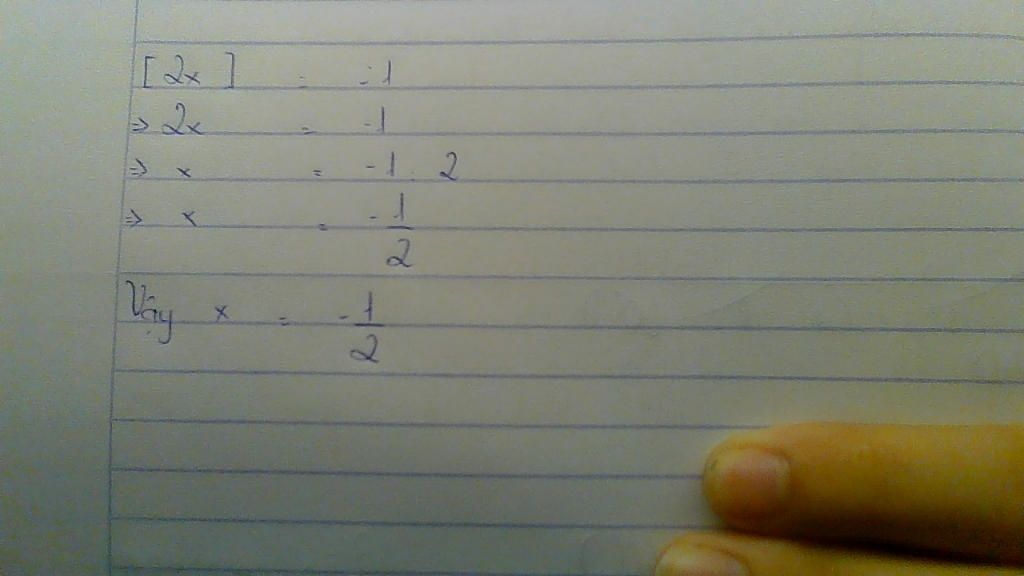 [ 2x ] = -1
=> 2x = -1
=> x = -1 : 2
=> x = -1/2
Vậy x = -1/2